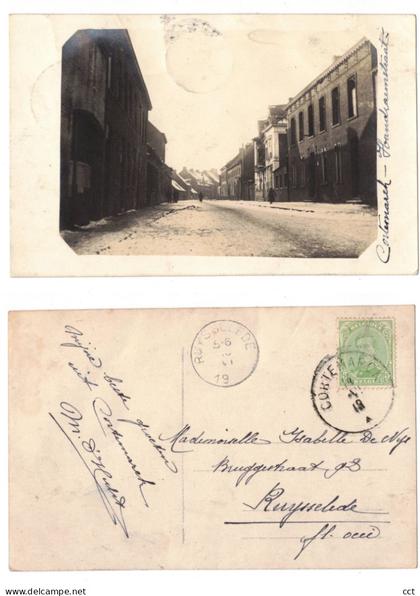 Cortemarck - Handzaemestraat
RUYSSELEDE
5-6
19
CORTEMARCK
19
Mijne beste groeten
uit Cortemarck
M. d'
Mademoiselle Isabelle De Nys
Bruggestraat 92
Ruysselede
fl. occ
delcampe.net